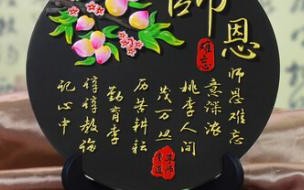 師恩
难忘
師恩难忘
意深浓
桃李人间
茂万丛
历苦耕耘
勤育李
谆谆教诲
记心中